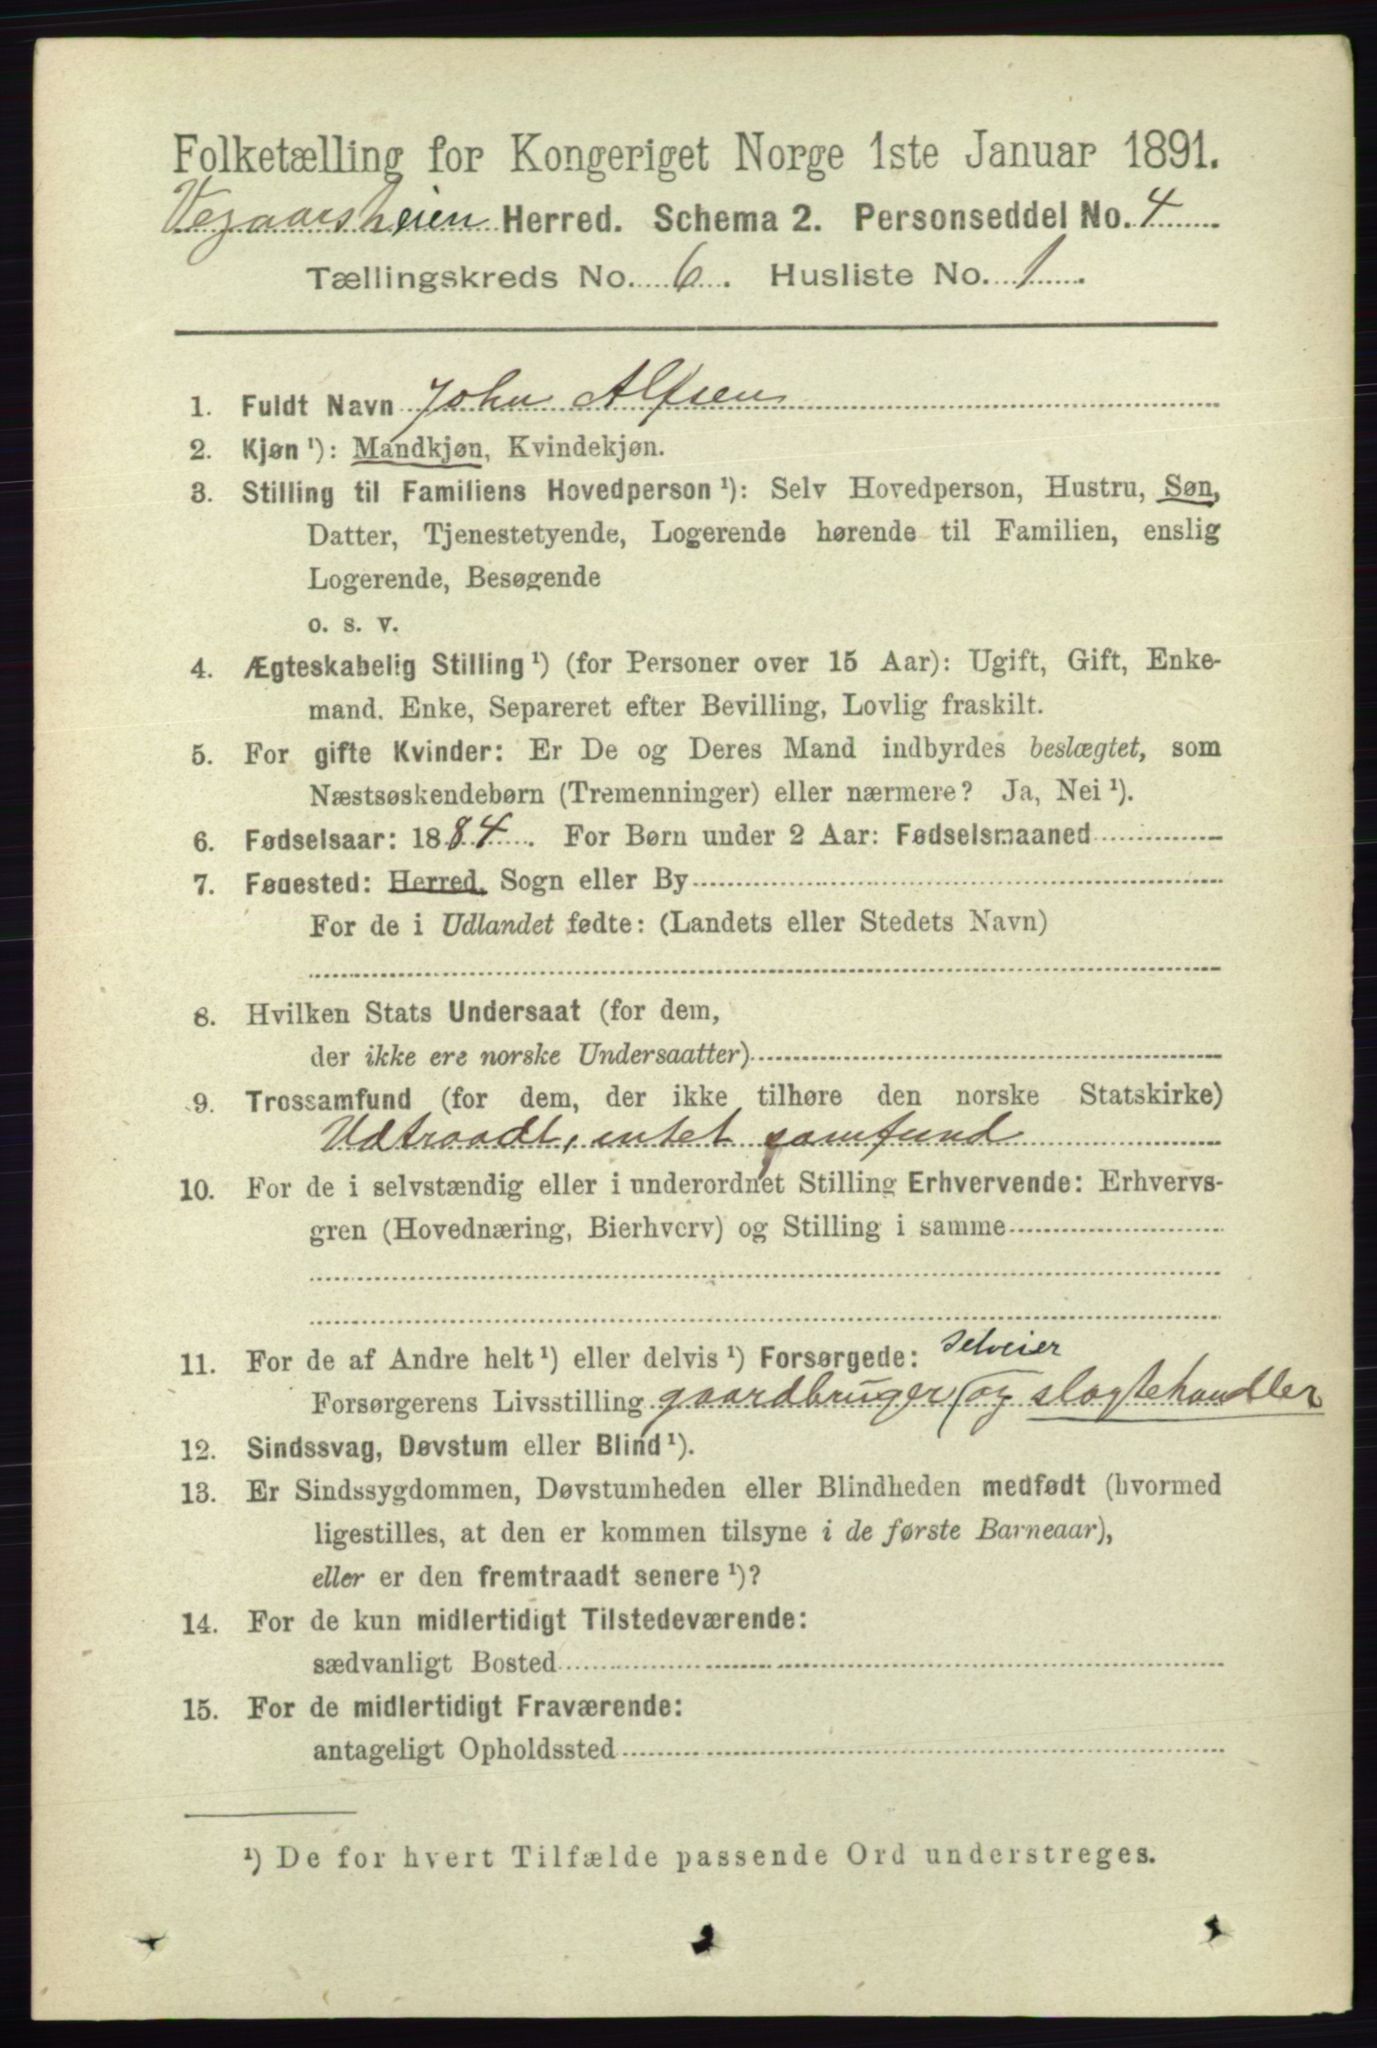 Folketælling for Kongeriget Norge 1ste Januar 1891.
Vegaarsheien Herred. Schema 2. Personseddel No. 4
Tællingskreds No. 6. Husliste No. 1
1. Fuldt Navn John Alfsen
2. Kjøn ¹): Mandkjøn, Kvindekjøn.
3. Stilling til Familiens Hovedperson ¹): Selv Hovedperson, Hustru, Søn,
Datter, Tjenestetyende, Logerende hørende til Familien, enslig
Logerende, Besøgende
o. s. v.
4. Ægteskabelig Stilling ¹) (for Personer over 15 Aar): Ugift, Gift, Enke-
mand. Enke, Separeret efter Bevilling, Lovlig fraskilt.
5. For gifte Kvinder: Er De og Deres Mand indbyrdes beslægtet, som
Næstsøskendebørn (Tremenninger) eller nærmere? Ja, Nei ¹).
6. Fødselsaar: 1884. For Børn under 2 Aar: Fødselsmaaned
7. Fødested: Herred, Sogn eller By
For de i Udlandet fødte: (Landets eller Stedets Navn)
8. Hvilken Stats Undersaat (for dem,
der ikke ere norske Undersaatter)
9. Trossamfund (for dem, der ikke tilhøre den norske Statskirke)
Udtraadt, intet samfund
10. For de i selvstændig eller i underordnet Stilling Erhvervende: Erhvervs-
gren (Hovednæring, Bierhverv) og Stilling i samme
11. For de af Andre helt ¹) eller delvis ¹) Forsørgede: selveier
Forsørgerens Livsstilling gaardbruger (og slagtehandler
12. Sindssvag, Døvstum eller Blind ¹).
13. Er Sindssygdommen, Døvstumheden eller Blindheden medfødt (hvormed
ligestilles, at den er kommen tilsyne i de første Barneaar),
eller er den fremtraadt senere ¹)?
14. For de kun midlertidigt Tilstedeværende:
sædvanligt Bosted
15. For de midlertidigt Fraværende:
antageligt Opholdssted
¹) De for hvert Tilfælde passende Ord understreges.